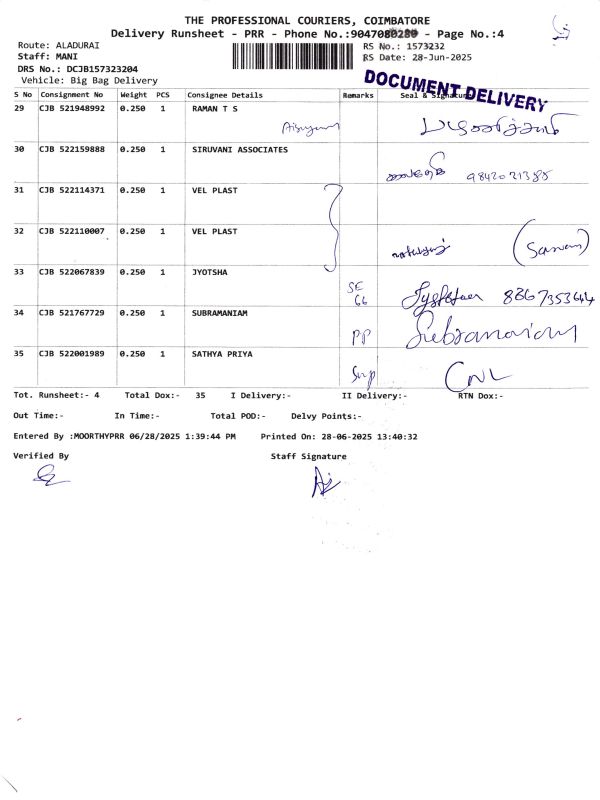 THE PROFESSIONAL COURIERS, COIMBATORE
Delivery Runsheet - PRR - Phone No.:9047080280 - Page No.:4
Route: ALADURAI
RS No.: 1573232
Staff: MANI
RS Date: 28-Jun-2025
DRS No.: DCJB157323204
Vehicle: Big Bag Delivery
DOCUMENT DELIVERY
S No Consignment No Weight PCS Consignee Details Remarks Seal & Signature
29 CJB 521948992 0.250 1 RAMAN T S
30 CJB 522159888 0.250 1 SIRUVANI ASSOCIATES
9842021385
31 CJB 522114371 0.250 1 VEL PLAST
32 CJB 522110007 0.250 1 VEL PLAST
33 CJB 522067839 0.250 1 JYOTSHA
8867353644
34 CJB 521767729 0.250 1 SUBRAMANIAM
PP Subramaniam
35 CJB 522001989 0.250 1 SATHYA PRIYA
CNL
Tot. Runsheet:- 4 Total Dox:- 35 I Delivery:- II Delivery:- RTN Dox:-
Out Time:- In Time:- Total POD:- Delvy Points:-
Entered By :MOORTHYPRR 06/28/2025 1:39:44 PM Printed On: 28-06-2025 13:40:32
Verified By Staff Signature